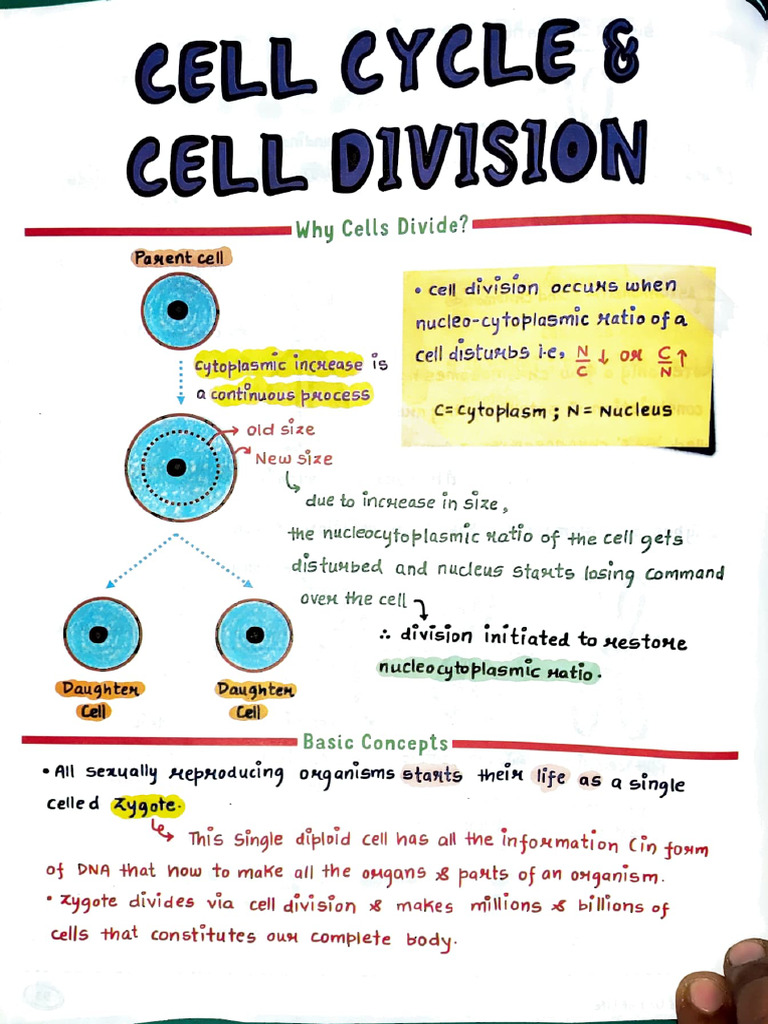 CELL CYCLE &
CELL DIVISION
Why Cells Divide?
Parent cell
• cell division occurs when
nucleo-cytoplasmic ratio of a
cell disturbs i.e, N/C ↓ or C/N ↑
C= cytoplasm ; N = Nucleus
cytoplasmic increase is
a continuous process
Old size
New size
due to increase in size,
the nucleocytoplasmic ratio of the cell gets
disturbed and nucleus starts losing command
over the cell
∴ division initiated to restore
nucleocytoplasmic ratio.
Daughter
Cell
Daughter
Cell
Basic Concepts
• All sexually reproducing organisms starts their life as a single
celled zygote.
This single diploid cell has all the information (in form
of DNA that how to make all the organs & parts of an organism.
• zygote divides via cell division & makes millions & billions of
cells that constitutes our complete body.